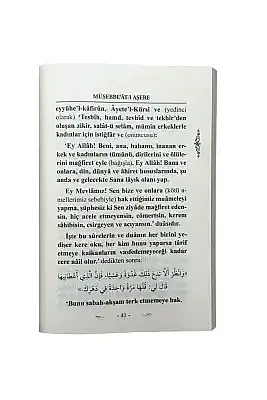 MÜSEBBEÂT-I AŞERE
eyyühe'l-kâfirûn, Âyete'l-Kürsî ve (yedinci
olarak) 'Tesbîh, hamd, tevhîd ve tekbîr'den
oluşan zikir, salât-ü selâm, mümin erkeklerle
kadınlar için istiğfâr ve (onuncusu):
'Ey Allâh! Beni, ana, babamı, inanan er-
kek ve kadınların tümünü, dirilerini ve ölüle-
rini mağfiret eyle (bağışla). Ey Allâh! Bana ve
onlara, din, dünyâ ve âhiret hususlarında, şu
anda ve gelecekte Sana lâyık olanı yap.
Ey Mevlâmız! Sen bize ve onlara (kötü a-
mellerimiz sebebiyle) hak ettiğimiz muâmeleyi
yapma, şüphesiz ki Sen ziyâde mağfiret eden-
sin, hiç acele etmeyensin, cömertsin, kerem
sâhibisin, esirgeyen ve acıyansın.' duâsıdır.
İşte bu sûrelerin ve duânın her birini ye-
dişer kere oku, her kim bunu yaparsa târif
etmeye kalkanların vasfedemeyeceği kadar
ecre nâil olur.' dedikten sonra:
«وَانْظُرْ أَلَّا تَدَعَ ذٰلِكَ غُدْوَةً وَعَشِيًّا، فَإِنَّ الَّذِي أَعْطَانِيهَا
قَالَ لِي: قُلْهَا مَرَّةً وَاحِدَةً فِي دَهْرِكَ.»
'Bunu sabah-akşam terk etmemeye bak.
- 41 -